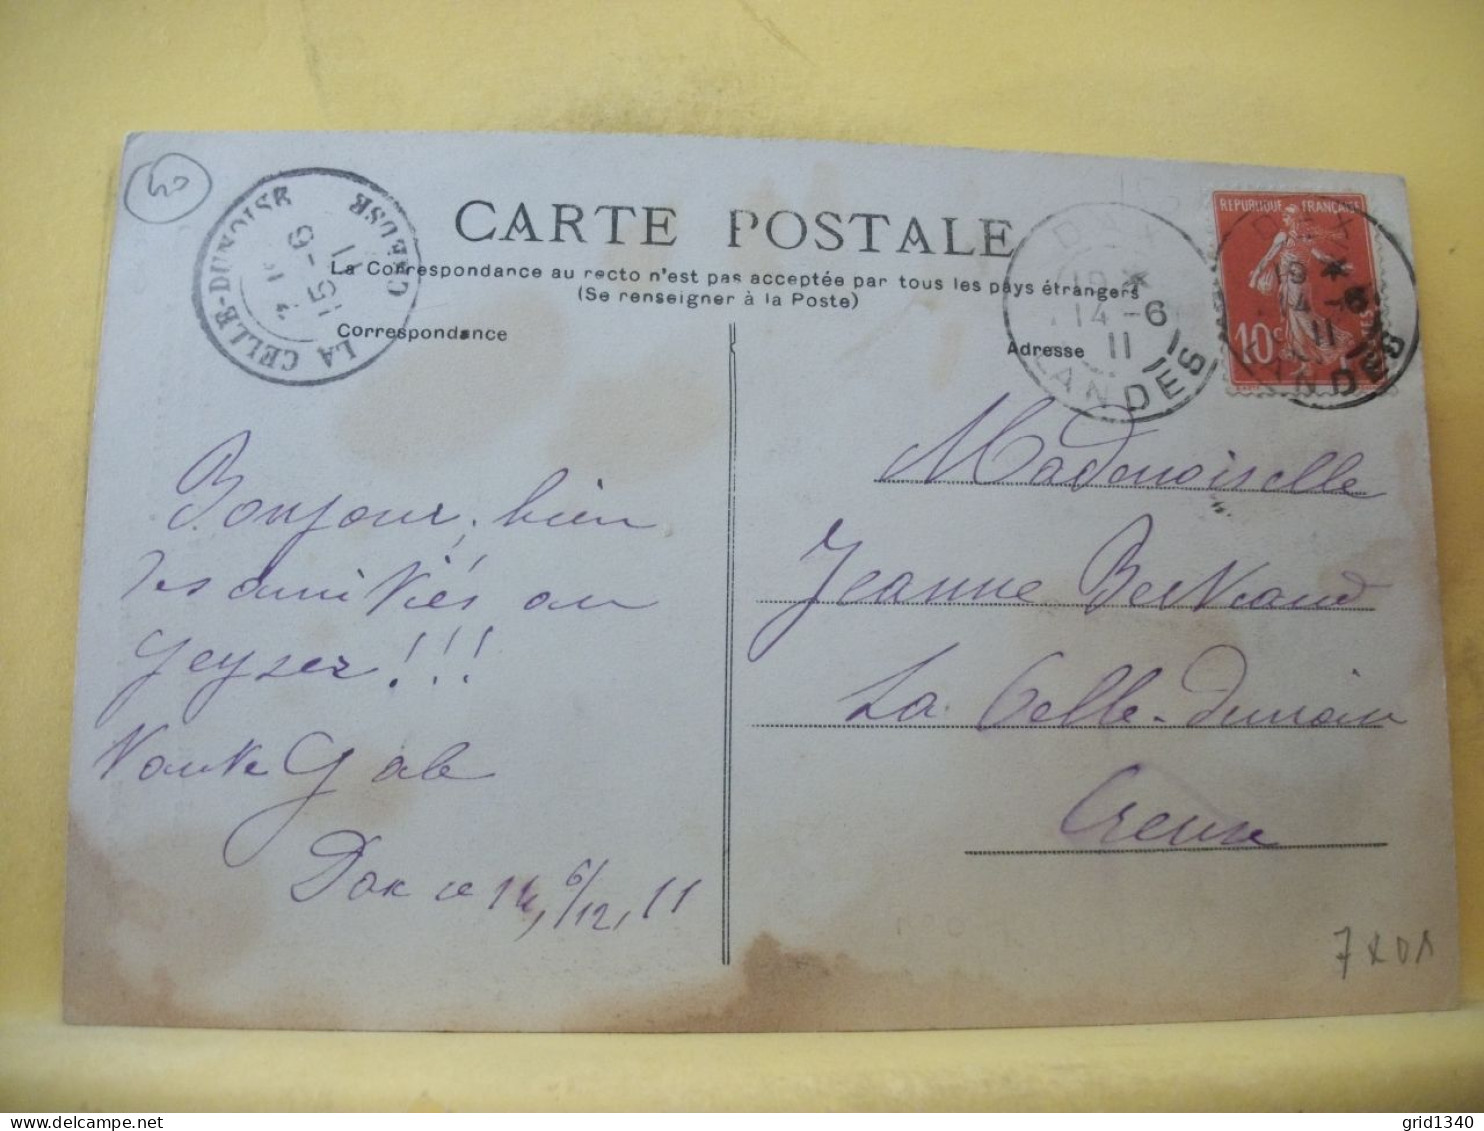 40
LA CELLE-DUNOISE
CREUSE
15 -6
11
CARTE POSTALE
La Correspondance au recto n'est pas acceptée par tous les pays étrangers
(Se renseigner à la Poste)
Correspondance
Adresse
DAX
19 *
14 -6
11
LANDES
REPUBLIQUE FRANÇAISE
10c
POSTES
DAX
19 *
14 -6
11
LANDES
Bonjour, bien
des amitiés au
geyser!!!
Dax ce 14, 6/12, 11
Mademoiselle
Jeanne Bertrand
La Celle-Dunoise
Creuse
grid1340